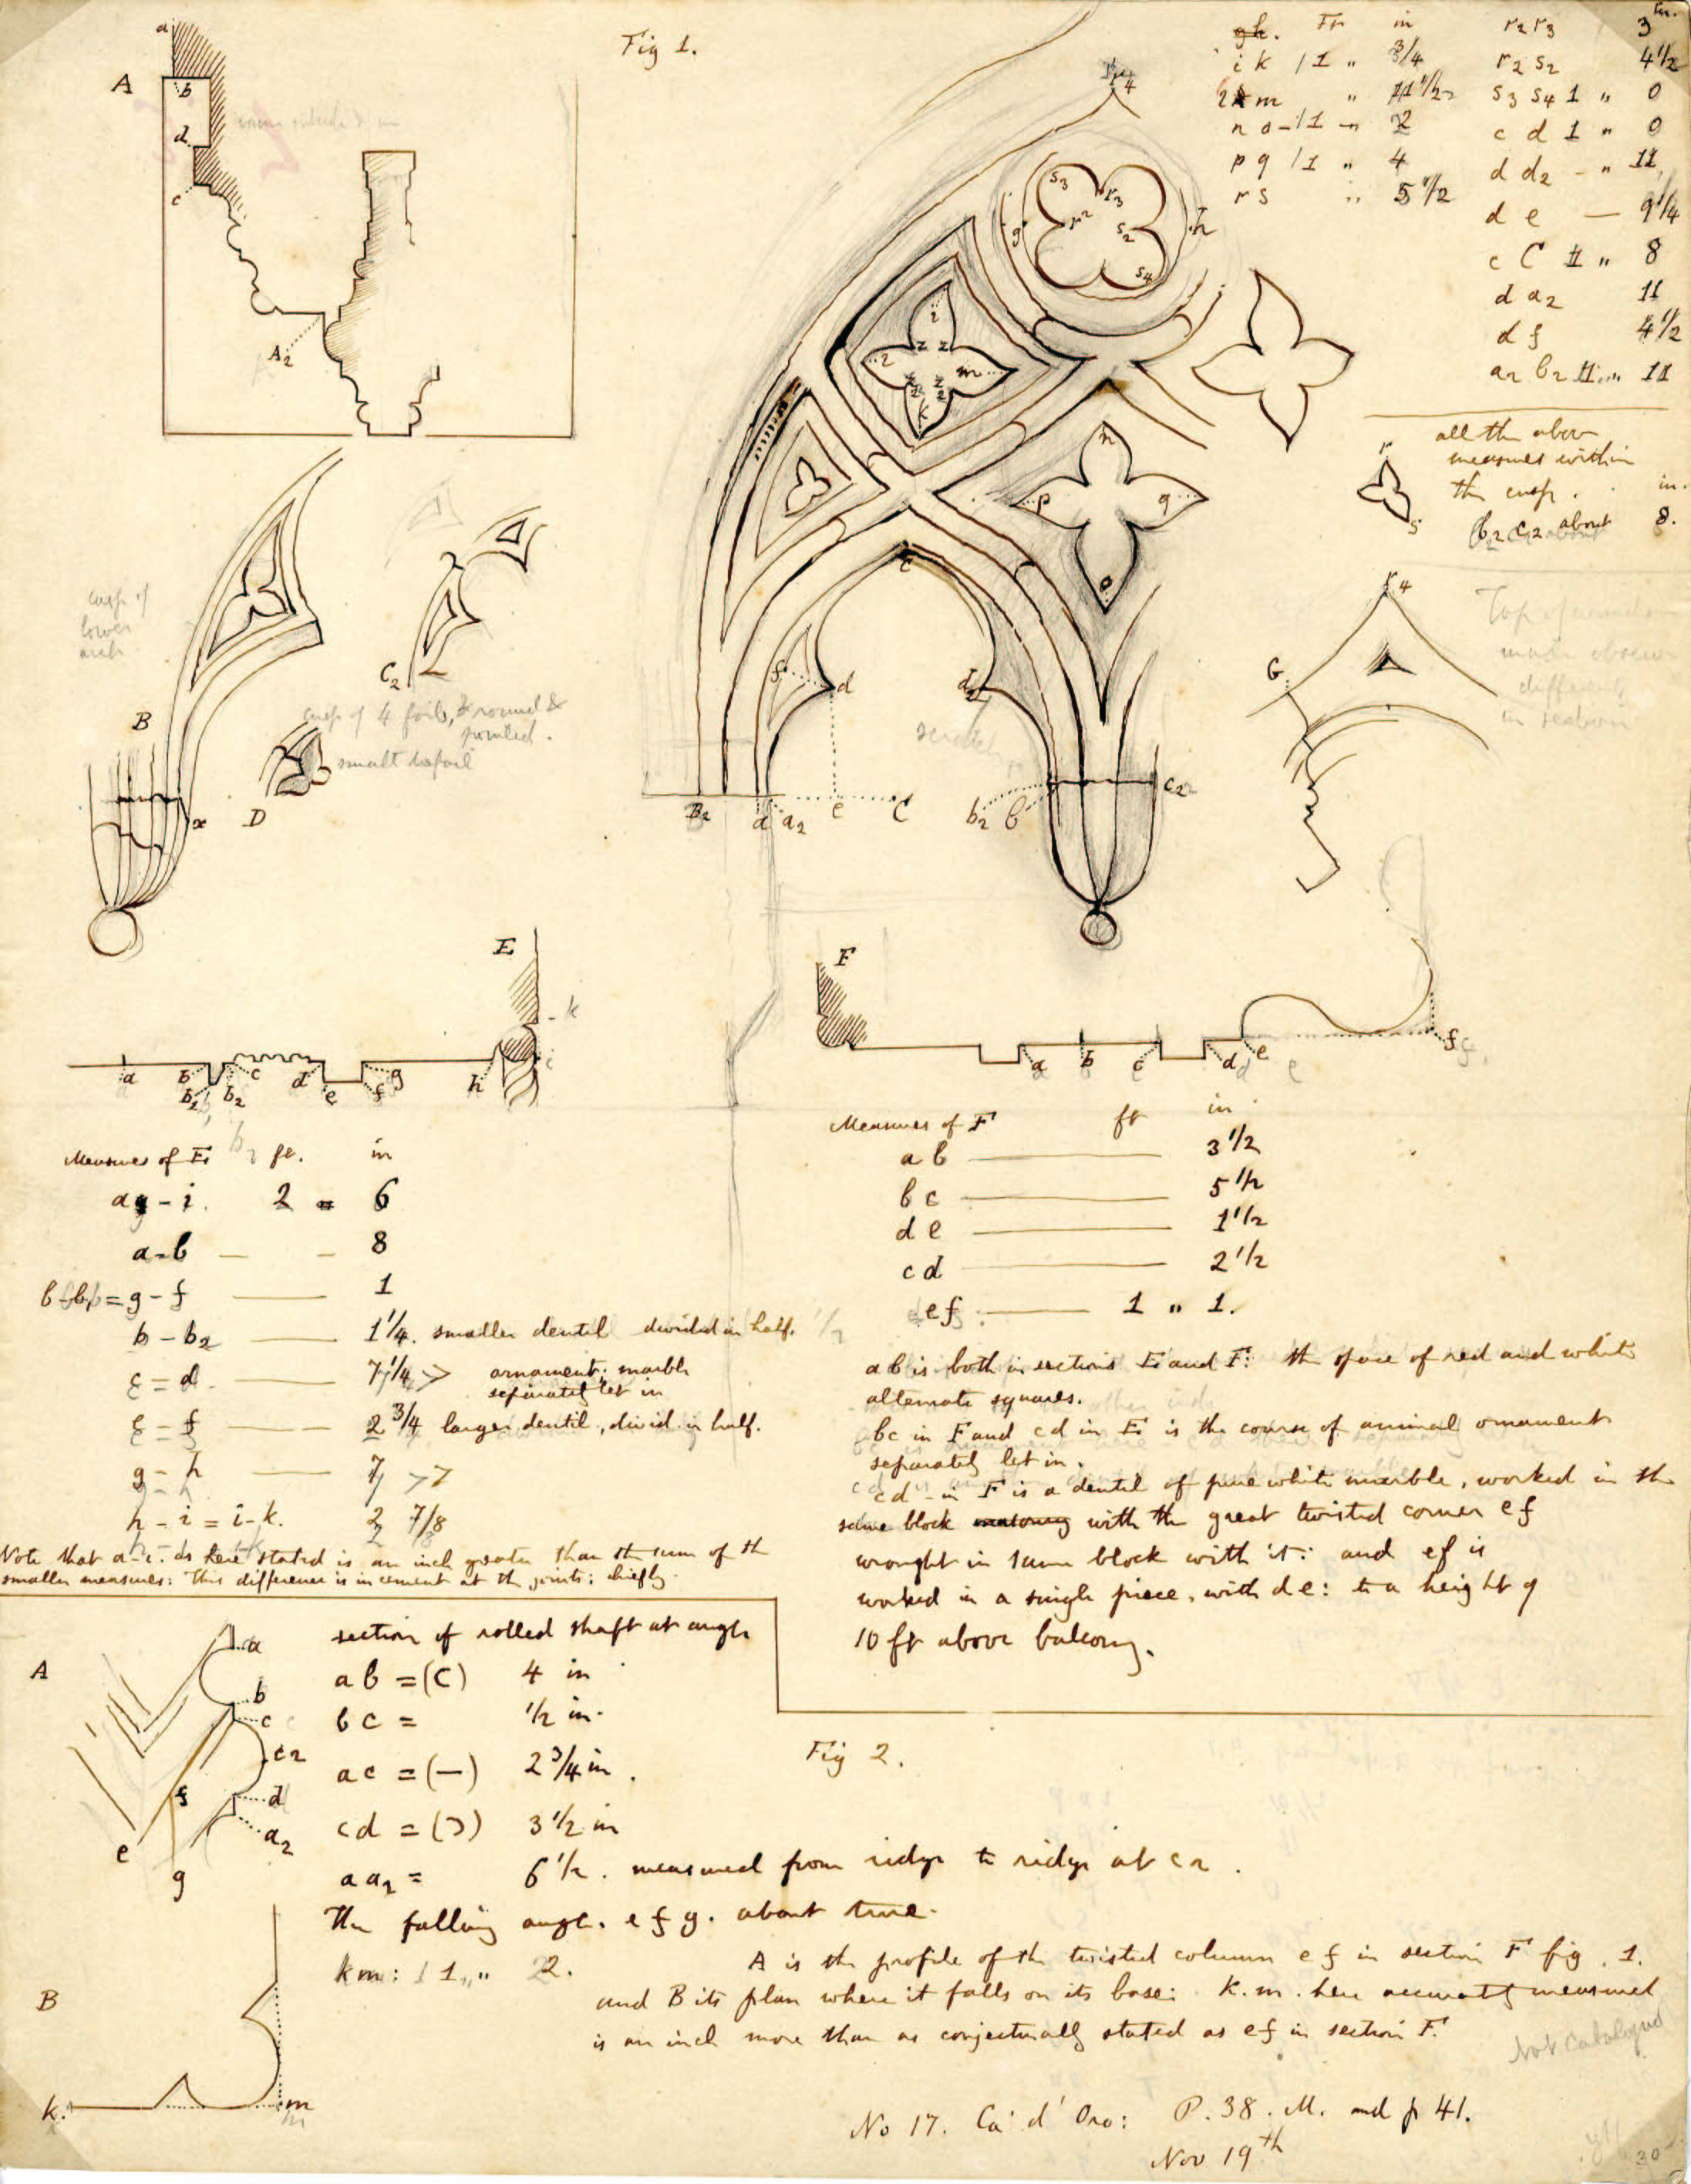 Fig 1.
A
a
b
d
c
A2
gh. Ft in
i k 1 " 3/4
l m " 11 1/2
n o - 1 - 2
p q 1 " 4
r s " 5 1/2
in.
r2 r3 3
r2 s2 4 1/2
s3 s4 1 " 0
c d 1 " 0
d d2 - " 11
d e — 9 1/4
c C 1 " 8
d a2 11
d f 4 1/2
a2 b2 1 " 11
all the above
measures within
the cusp. in.
b2 c2 about 8.
r
s
r4
s3
r3
r2
s2
s4
g
h
i
z z
l m
z2 z2
k
n
p q
o
c
f
d
d2
B2 a a2 e C
b2 b
c2
cusp of
lower
arch
B
x
C2
cusp of 4 foils, round &
pointed.
small trefoil
D
G
r4
Top of
different
in section
E
k
i
a b c d e f g h
b2 b2
F
a b c d e f
Measures of E ft. in
a - i. 2 = 6
a-b — - 8
= g - f — 1
b - b2 — 1 1/4. smaller dentil divided in half.
c = d. — 7 1/4 > ornament; marble
separately let in
e = f — 2 3/4 larger dentil, divid. in half.
g = h — 7 > 7
h - i = i - k. 2 7/8
Note that a-i. as here stated is an inch greater than the sum of the
smaller measures: this difference is in cement at the joints: chiefly.
Measures of F ft in
a b — 3 1/2
b c — 5 1/2
d e — 1 1/2
c d — 2 1/2
e f — 1 " 1.
a b is both in sections E and F: the space of red and white
alternate squares.
bc in F and cd in E is the course of animal ornament
separately let in.
cd in F is a dentil of pure white marble, worked in the
same block masonry with the great twisted corner ef
wrought in same block with it: and ef is
worked in a single piece, with de: to a height of
10 ft above balcony.
A
a
b
c
c2
d
a2
f
e
g
section of rolled shaft at angle
a b = (C) 4 in
b c = 1/2 in.
a c = (—) 2 3/4 in.
c d = (Ɔ) 3 1/2 in
a a2 = 6 1/2. measured from ridge to ridge at c2.
The falling angle. e f g. about true.
k m: 1 " 2.
Fig 2.
A is the profile of the twisted column e f in section F fig. 1.
and B its plan where it falls on its base: K.m. here accurately measured
is an inch more than as conjecturally stated as ef in section F.
B
k.
m
Not Catalogued
No 17. Ca' d' Oro: P. 38. M. and p 41.
Nov 19th
30